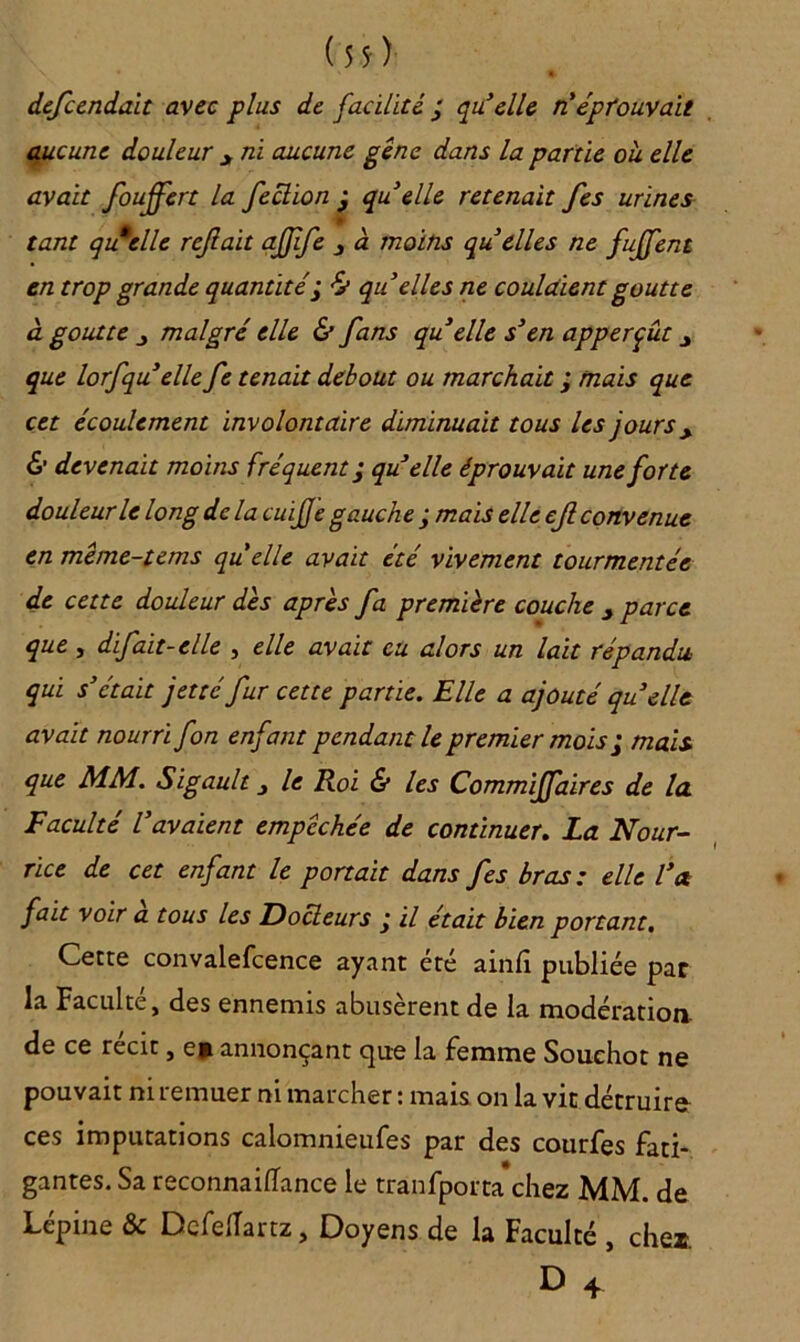 (55)
deſcendait avec plus de facilité ; qu'elle n'éprouvait
aucune douleur, ni aucune gêne dans la partie où elle
avait ſouffert la ſection ; qu'elle retenait ſes urines
tant qu'elle reſtait aſſiſe, à moins qu'elles ne fuſſent
en trop grande quantité ; & qu'elles ne coulaient goutte
à goutte, malgré elle & ſans qu'elle s'en apperçût,
que lorſqu'elle ſe tenait debout ou marchait ; mais que
cet écoulement involontaire diminuait tous les jours,
& devenait moins fréquent ; qu'elle éprouvait une forte
douleur le long de la cuiſſe gauche ; mais elle eſt convenue
en même-tems qu'elle avait été vivement tourmentée
de cette douleur dès après ſa première couche, parce
que, diſait-elle, elle avait eu alors un lait répandu
qui s'était jetté ſur cette partie. Elle a ajouté qu'elle
avait nourri ſon enfant pendant le premier mois ; mais
que MM. Sigault, le Roi & les Commiſſaires de la
Faculté l'avaient empêchée de continuer. La Nour-
rice de cet enfant le portait dans ſes bras : elle l'a
fait voir à tous les Docteurs ; il était bien portant.
Cette convaleſcence ayant été ainſi publiée par
la Faculté, des ennemis abusèrent de la modération
de ce récit, en annonçant que la femme Souchot ne
pouvait ni remuer ni marcher : mais on la vit détruire
ces imputations calomnieuſes par des courſes fati-
gantes. Sa reconnaiſſance le tranſporta chez MM. de
Lépine & Deſeſſartz, Doyens de la Faculté, chez
D 4